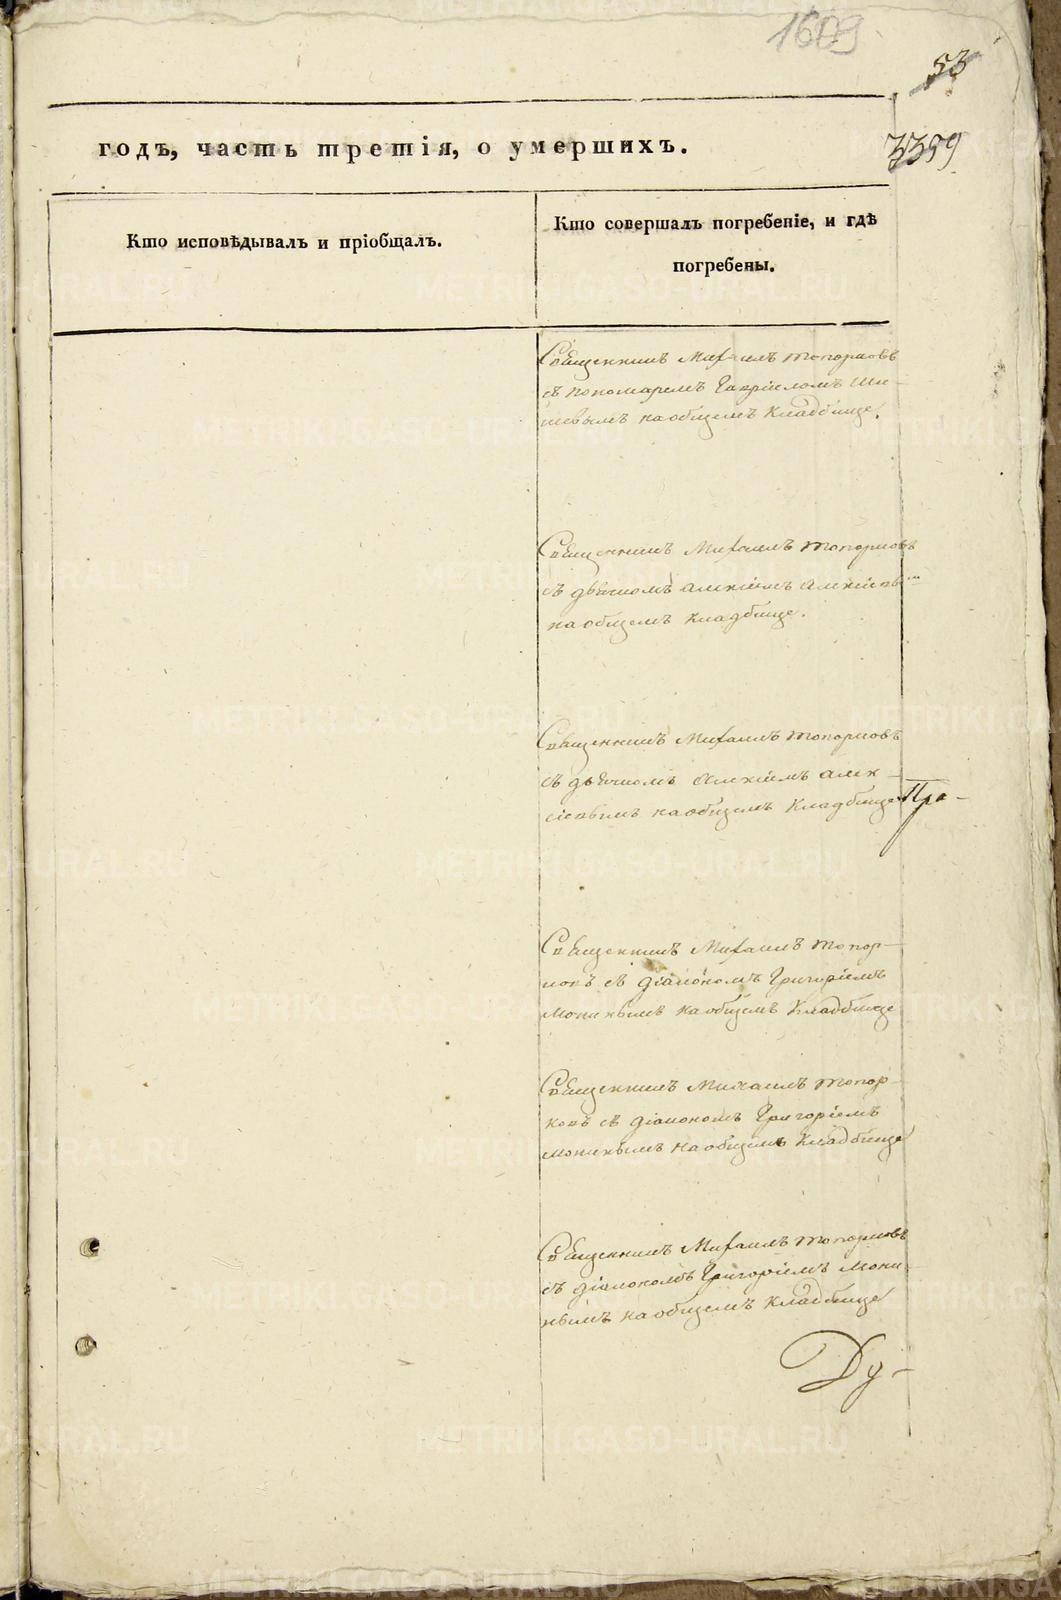 1609
53
3359
годъ, часть третія, о умершихъ.
Кто исповѣдывалъ и пріобщалъ.
Кто совершалъ погребеніе, и гдѣ
погребены.
Священникъ Михаилъ Топорковъ
съ пономаремъ Гавріиломъ Ши-
на общемъ Кладбище.
Священникъ Михаилъ Топорковъ
съ дьячкомъ Алексіемъ
на общемъ Кладбище.
Священникъ Михаилъ Топорковъ
съ дьячкомъ Алексіемъ Алек-
сіевымъ на общемъ Кладбище
Священникъ Михаилъ Топор-
ковъ съ діакономъ Григоріемъ
Мониными на общемъ Кладбище
Священникъ Михаилъ Топор-
ковъ съ діакономъ Григоріемъ
на общемъ Кладбище
Священникъ Михаилъ Топорковъ
съ діакономъ Григоріемъ Мони-
нымъ на общемъ Кладбище
Ду-
METRIKI.GASO-URAL.RU